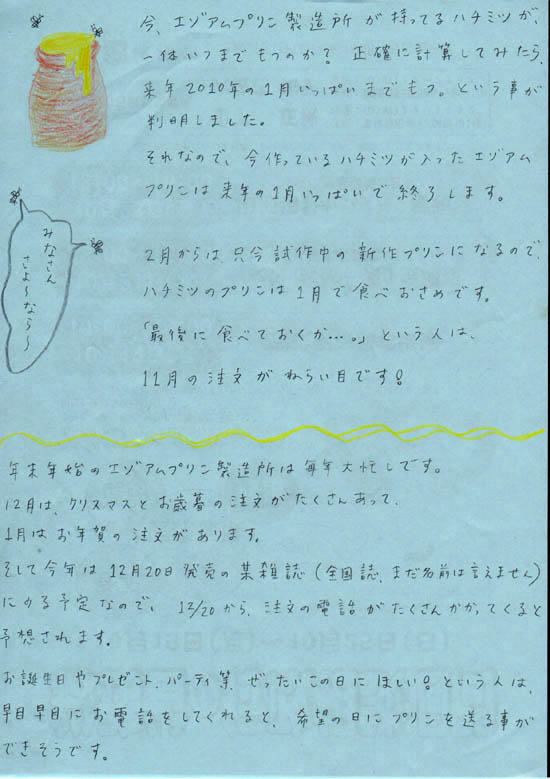 今、エゾアムプリン製造所が持ってるハチミツが、
一体いつまでもつのか? 正確に計算してみたら、
来年2010年の1月いっぱいまでもつ。という事が
判明しました。
それなので、今作っているハチミツが入ったエゾアム
プリンは来年の1月いっぱいで終了します。
みなさん
さよ〜なら〜
2月からは、只今試作中の新作プリンになるので、
ハチミツのプリンは1月で食べおさめです。
「最後に食べておくか…。」という人は、
11月の注文がねらい目です!
年末年始のエゾアムプリン製造所は毎年大忙しです。
12月は、クリスマスとお歳暮の注文がたくさんあって、
1月はお年賀の注文があります。
そして今年は12月20日発売の某雑誌(全国誌、まだ名前は言えません)
にのる予定なので、12/20から、注文の電話がたくさんかかってくると
予想されます。
お誕生日やプレゼント、パーティ等、ぜったいこの日にほしい!という人は、
早目早目にお電話をしてくれると、希望の日にプリンを送る事が
できそうです。